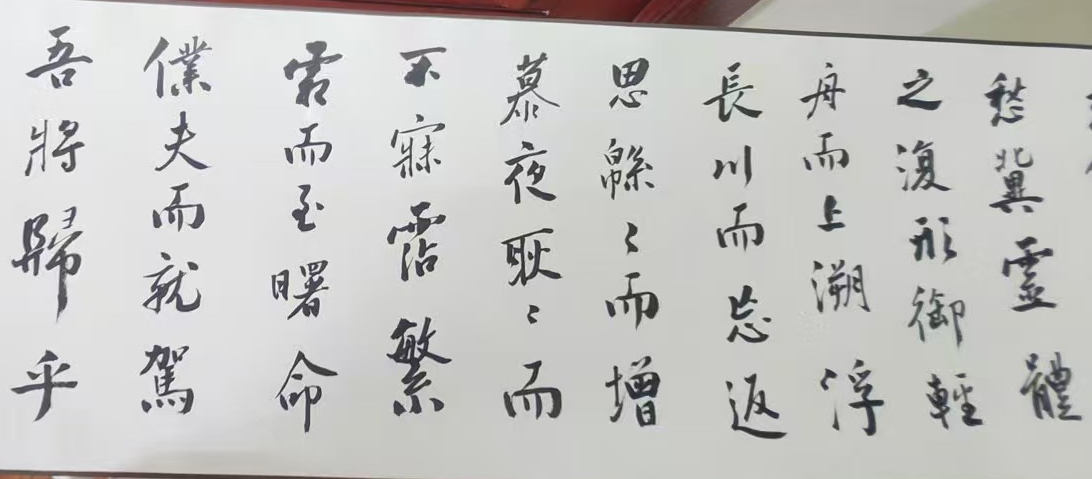 愁冀靈體
之復形御輕
舟而上溯浮
長川而忘返
思緜〻而增
慕夜耿〻而
不寐霑繁
霜而至曙命
僕夫而就駕
吾將歸乎